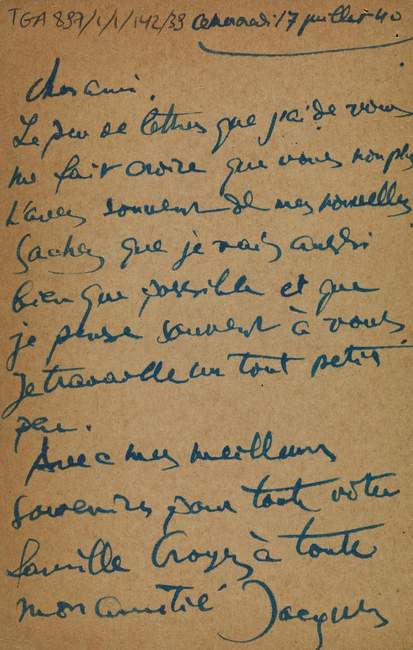 TGA 897/1/1/142/39 ce mercredi 17 juillet 40
Cher ami.
Le peu de lettres que j'ai de vous
me fait croire que vous non plus
n'avez souvent de mes nouvelles
Sachez que je vais aussi
bien que possible et que
je pense souvent à vous
Je travaille un tout petit
peu.
Avec mes meilleurs
souvenirs pour toute votre
famille Croyez à toute
mon amitié Jacques